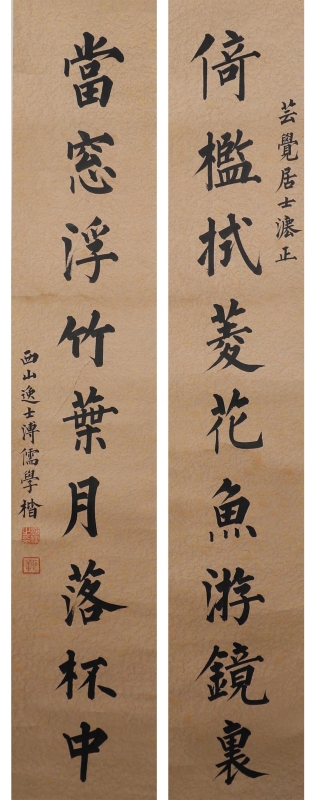 芸覺居士灋正
倚檻拭菱花魚游鏡裏
當窓浮竹葉月落杯中
西山逸士溥儒學楷